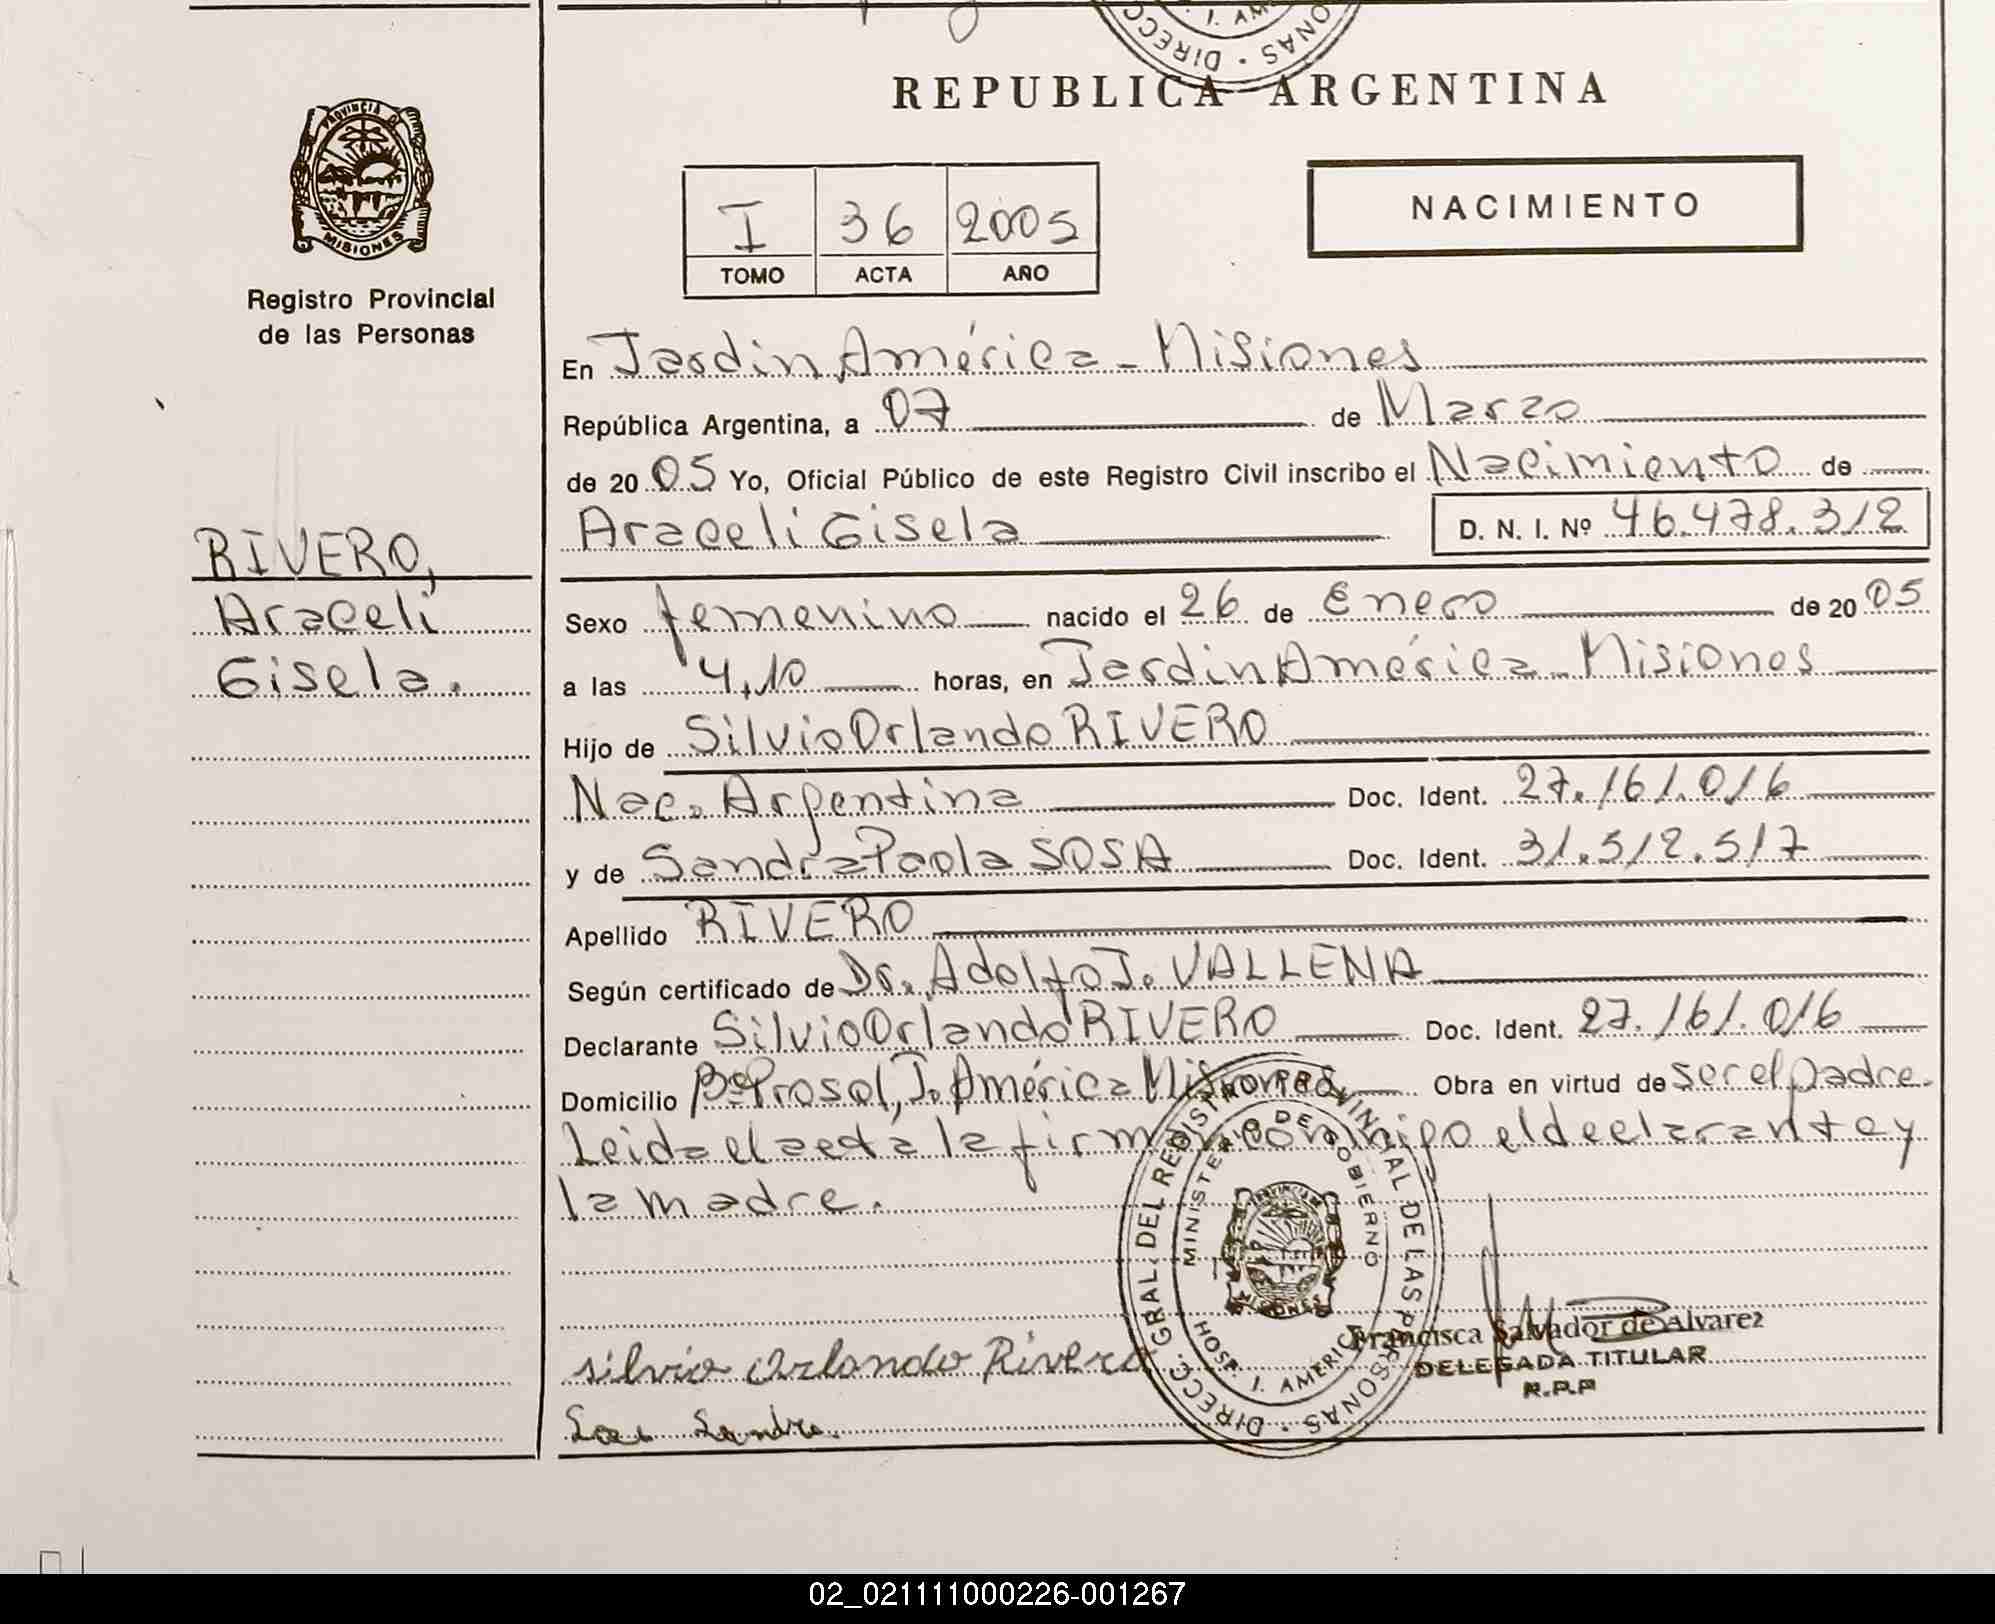 REPUBLICA ARGENTINA
PROVINCIA DE
MISIONES
Registro Provincial
de las Personas
I 36 2005
TOMO ACTA AÑO
NACIMIENTO
En Jardin América - Misiones
República Argentina, a 07 de Marzo
de 20 05 Yo, Oficial Público de este Registro Civil inscribo el Nacimiento de
Araceli Gisela D. N. I. Nº 46.478.312
RIVERO,
Araceli
Gisela.
Sexo femenino nacido el 26 de Enero de 20 05
a las 4,10 horas, en Jardin América - Misiones
Hijo de Silvio Orlando RIVERO
Nac. Argentina Doc. Ident. 27.161.016
y de Sandra Paola SOSA Doc. Ident. 31.512.517
Apellido RIVERO
Según certificado de Dr. Adolfo J. VALLENA
Declarante Silvio Orlando RIVERO Doc. Ident. 27.161.016
Domicilio Bº Prosol, J. América Misiones Obra en virtud de ser el padre.
Leida el acta la firman conmigo el declarante y
la madre.
DIRECC. GRAL. DEL REGISTRO PROVINCIAL DE LAS PERSONAS
MINISTERIO DE GOBIERNO
HOSP. J. AMERICA
Francisca Salvador de Alvarez
DELEGADA TITULAR
R.P.P
silvio Orlando Rivero
Sosa Sandra.
02_021111000226-001267